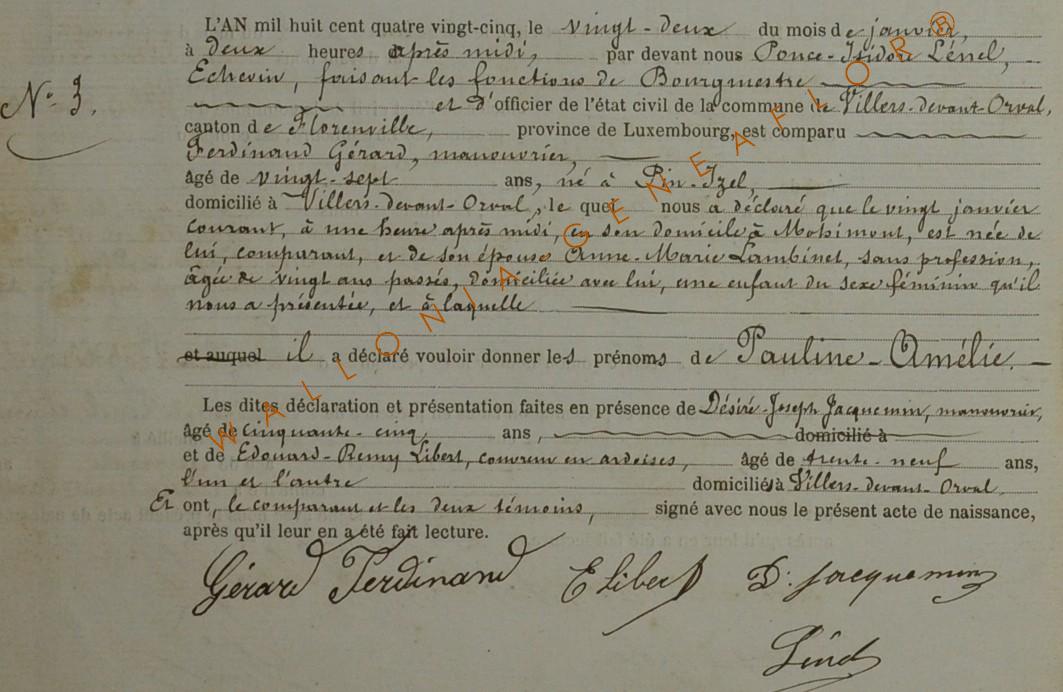 L'AN mil huit cent quatre vingt-cinq, le vingt-deux du mois de janvier,
à deux heures après midi, par devant nous Ponce-Isidore Lénel,
Echevin, faisant les fonctions de Bourgmestre
N° 3.
et d'officier de l'état civil de la commune de Villers-devant-Orval,
canton de Florenville, province de Luxembourg, est comparu
Ferdinand Gérard, manouvrier,
âgé de vingt-sept ans, né à Pin-Izel,
domicilié à Villers-devant-Orval, le quel nous a déclaré que le vingt janvier
courant, à une heure après midi, en son domicile à Mohimont, est née de
lui, comparant, et de son épouse Anne-Marie Lambinet, sans profession,
âgée de vingt ans passés, domiciliée avec lui, une enfant du sexe féminin qu'il
nous a présentée, et à laquelle
et auquel il a déclaré vouloir donner les prénoms de Pauline-Amélie.
Les dites déclaration et présentation faites en présence de Désiré-Joseph Jacquemin, manouvrier,
âgé de cinquante-cinq ans, domicilié à
et de Edouard-Remy Libert, couvreur en ardoises, âgé de trente-neuf ans,
l'un et l'autre domiciliés à Villers-devant-Orval.
Et ont, le comparant et les deux témoins, signé avec nous le présent acte de naissance,
après qu'il leur en a été fait lecture.
Gérard Ferdinand E Libert D. Jacquemin
WALLONIA GENEALOR ®